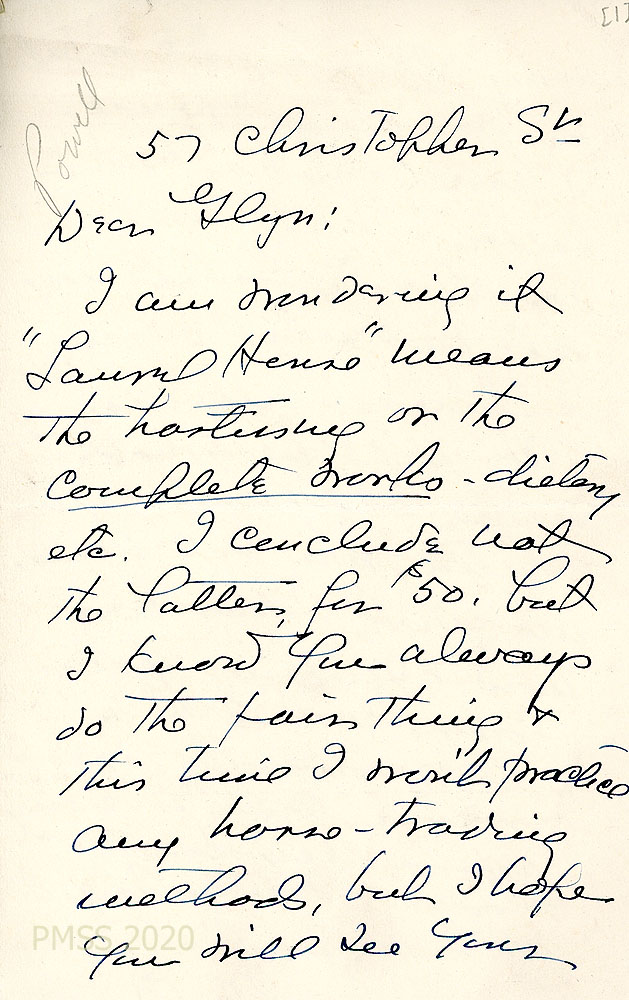 [1]
Powell
57 Christopher St
Dear Glyn:
I am wondering if
"Laurel House" means
the hostessing or the
complete works - dietary
etc. I conclude not
the latter, for $50. but
I know you always
do the fair thing &
this time I won't practice
any horse-trading
methods, but I hope
you will see your
PMSS 2020